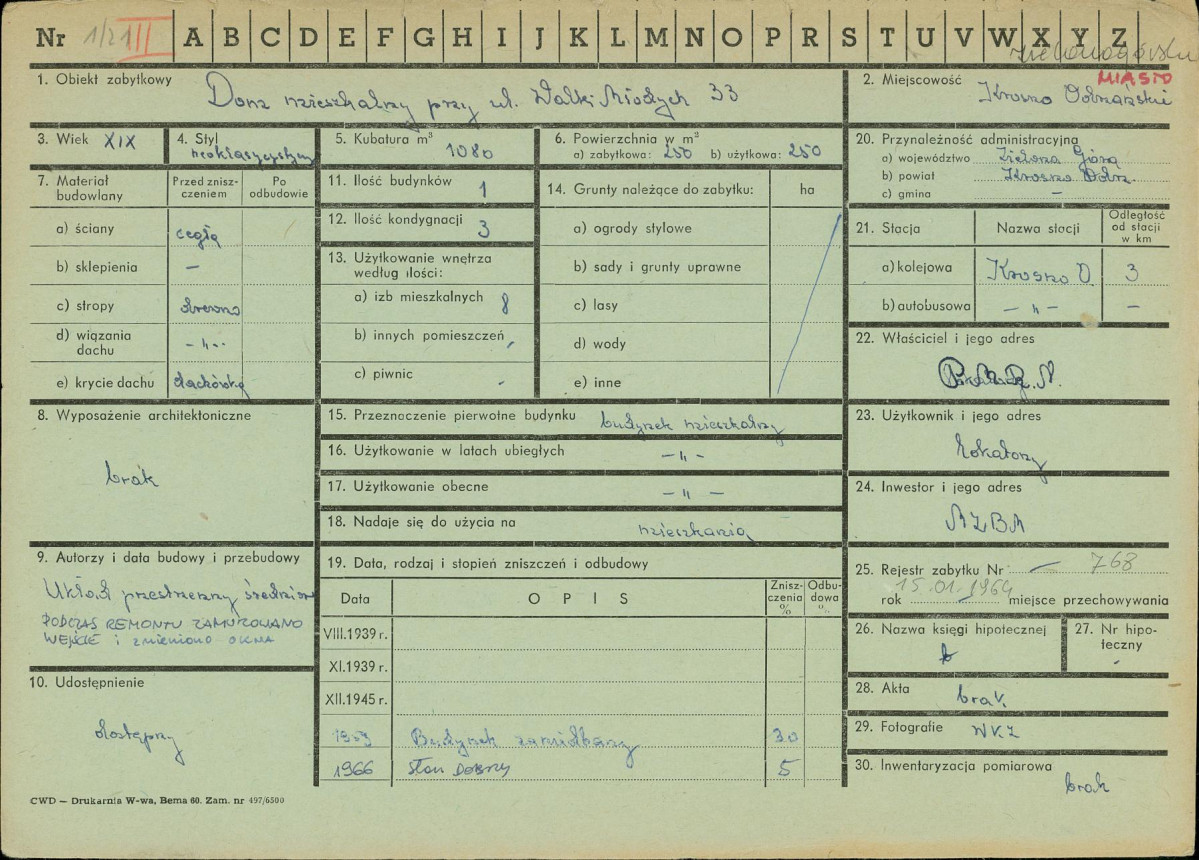 Nr 1/21 III A B C D E F G H I J K L M N O P R S T U V W X Y Z
MIASTO
1. Obiekt zabytkowy Dom mieszkalny przy ul. Walki Młodych 33
2. Miejscowość Krosno Odrzańskie
3. Wiek XIX
4. Styl neoklasycystyczny
5. Kubatura m³ 1080
6. Powierzchnia w m²
a) zabytkowa: 250 b) użytkowa: 250
20. Przynależność administracyjna
a) województwo Zielona Góra
b) powiat Krosno Odrz.
c) gmina –
7. Materiał budowlany
Przed zniszczeniem
Po odbudowie
a) ściany cegła
b) sklepienia –
c) stropy drewno
d) wiązania dachu -„-
e) krycie dachu dachówka
11. Ilość budynków 1
12. Ilość kondygnacji 3
13. Użytkowanie wnętrza
według ilości:
a) izb mieszkalnych 8
b) innych pomieszczeń
c) piwnic -
14. Grunty należące do zabytku: ha
a) ogrody stylowe
b) sady i grunty uprawne
c) lasy
d) wody
e) inne
21. Stacja
Nazwa stacji
Odległość
od stacji
w km
a) kolejowa Krosno O. 3
b) autobusowa -„- –
22. Właściciel i jego adres
8. Wyposażenie architektoniczne
brak
15. Przeznaczenie pierwotne budynku budynek mieszkalny
16. Użytkowanie w latach ubiegłych -„-
17. Użytkowanie obecne -„-
18. Nadaje się do użycia na mieszkania
23. Użytkownik i jego adres
Lokatorzy
24. Inwestor i jego adres
9. Autorzy i data budowy i przebudowy
Układ przestrzenny
PODCZAS REMONTU ZAMUROWANO
WEJŚCIE i zmieniono OKNA
10. Udostępnienie
dostępny
19. Data, rodzaj i stopień zniszczeń i odbudowy
Data
O P I S
Zniszczenia %
Odbudowa %
VIII.1939 r.
XI.1939 r.
XII.1945 r.
1959 Budynek zaniedbany 30
1966 stan DOBRY 5
25. Rejestr zabytku Nr – 768
rok 15.01.1964 miejsce przechowywania
26. Nazwa księgi hipotecznej
27. Nr hipoteczny
-
28. Akta brak
29. Fotografie WKZ
30. Inwentaryzacja pomiarowa
brak
CWD — Drukarnia W-wa, Bema 60. Zam. nr 497/6500